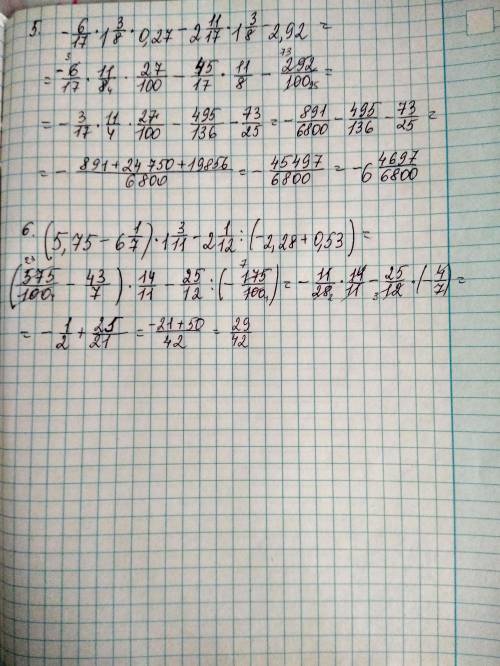 5. -6/17 · 1 3/8 · 0,27 - 2 11/17 · 1 3/8 - 2,92 =
= -6/17 · 11/8 · 27/100 - 45/17 · 11/8 - 292/100 =
= -3/17 · 11/4 · 27/100 - 495/136 - 73/25 = -891/6800 - 495/136 - 73/25 =
= - (891+24750+19856)/6800 = -45497/6800 = -6 4697/6800
6. (5,75 - 6 1/7) · 1 3/11 - 2 1/12 : (-2,28 + 0,53) =
(575/100 - 43/7) · 14/11 - 25/12 : (-175/100) = -11/28 · 14/11 - 25/12 · (-4/7) =
= -1/2 + 25/21 = (-21+50)/42 = 29/42